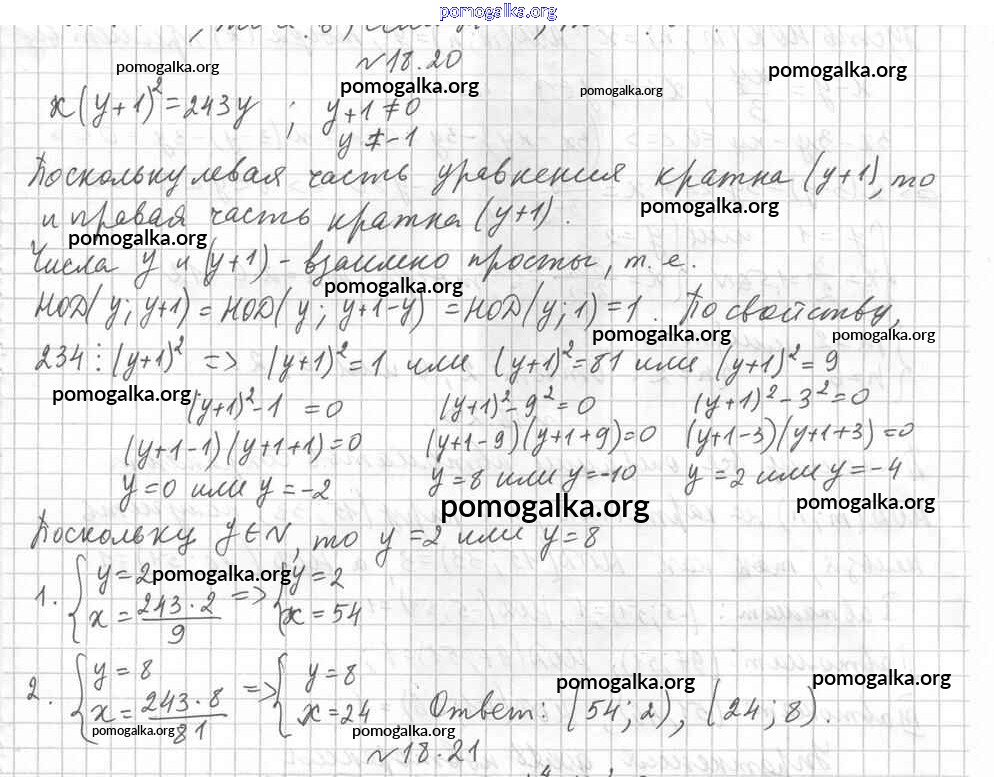 pomogalka.org
№18.20
pomogalka.org pomogalka.org pomogalka.org pomogalka.org
x(y+1)²=243y ; y+1≠0
y≠-1
Поскольку левая часть уравнения кратна (y+1), то
pomogalka.org
и правая часть кратна (y+1).
pomogalka.org
Числа y и (y+1) - взаимно просты, т.е.
pomogalka.org
НОД(y; y+1) = НОД(y; y+1-y) = НОД(y; 1) = 1. По свойству,
pomogalka.org pomogalka.org
234⋮(y+1)² => (y+1)²=1 или (y+1)²=81 или (y+1)²=9
pomogalka.org
(y+1)²-1=0 (y+1)²-9²=0 (y+1)²-3²=0
(y+1-1)(y+1+1)=0 (y+1-9)(y+1+9)=0 (y+1-3)(y+1+3)=0
y=0 или y=-2 y=8 или y=-10 y=2 или y=-4
pomogalka.org pomogalka.org
Поскольку y∈N, то y=2 или y=8
1. {y=2 {y=2
pomogalka.org
x=243·2/9 => x=54
2. {y=8 => {y=8
pomogalka.org pomogalka.org
x=243·8/81 x=24 Ответ: (54;2), (24;8).
pomogalka.org pomogalka.org
№18.21